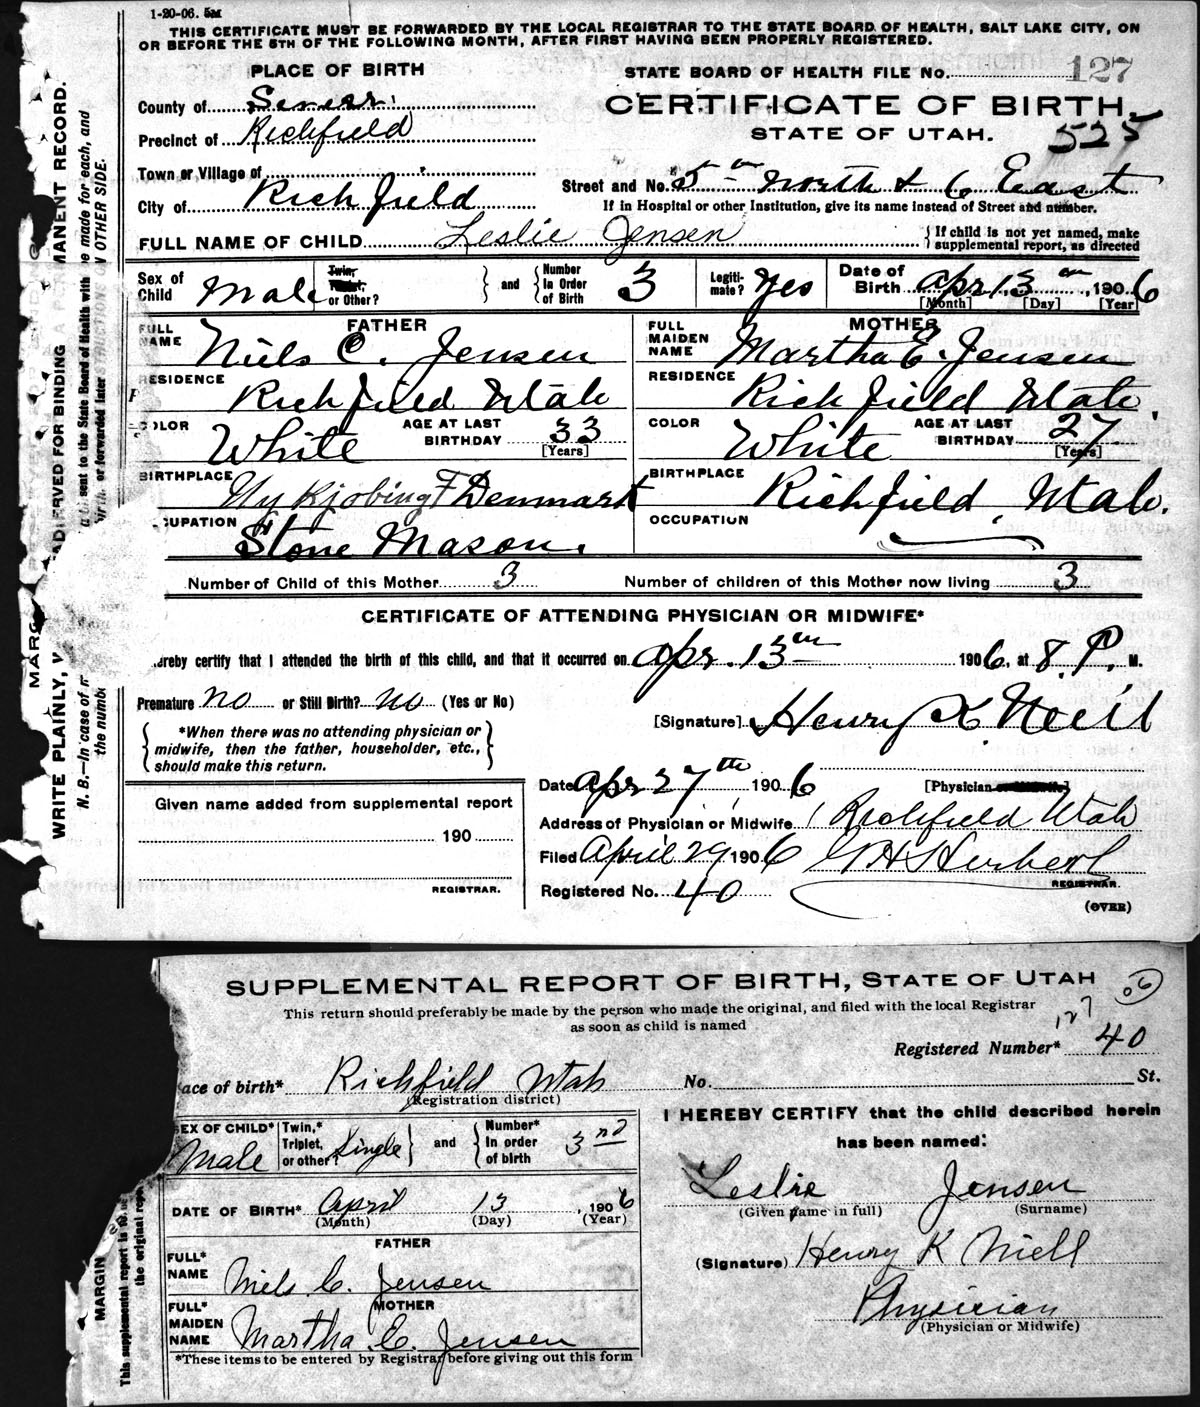 1-20-06. 5M
THIS CERTIFICATE MUST BE FORWARDED BY THE LOCAL REGISTRAR TO THE STATE BOARD OF HEALTH, SALT LAKE CITY, ON
OR BEFORE THE 5TH OF THE FOLLOWING MONTH, AFTER FIRST HAVING BEEN PROPERLY REGISTERED.
PLACE OF BIRTH
STATE BOARD OF HEALTH FILE NO. 127
County of Sevier.
CERTIFICATE OF BIRTH.
Precinct of Richfield
STATE OF UTAH. 525
Town or Village of
Street and No. 5th North & 6 East
City of Richfield
If in Hospital or other Institution, give its name instead of Street and number.
FULL NAME OF CHILD Leslie Jensen
{If child is not yet named, make
supplemental report, as directed
Sex of Child Male
Twin, Triplet, or Other?
and
Number In Order of Birth 3
Legitimate? Yes
Date of Birth Apr 13th, 1906
[Month] [Day] [Year]
FATHER
FULL NAME Niels C. Jensen
RESIDENCE Richfield Utah
COLOR White
AGE AT LAST BIRTHDAY 33 [Years]
BIRTHPLACE Ny Kjobing F Denmark
CUPATION Stone Mason.
MOTHER
FULL MAIDEN NAME Martha E. Jensen
RESIDENCE Richfield Utah.
COLOR White
AGE AT LAST BIRTHDAY 27 [Years]
BIRTHPLACE Richfield, Utah.
OCCUPATION
Number of Child of this Mother 3
Number of children of this Mother now living 3
CERTIFICATE OF ATTENDING PHYSICIAN OR MIDWIFE*
ereby certify that I attended the birth of this child, and that it occurred on Apr. 13th 1906, at 8. P. M.
Premature no or Still Birth? no (Yes or No)
[Signature] Henry K Neill
*When there was no attending physician or
midwife, then the father, householder, etc.,
should make this return.
Date Apr 27th, 1906
[Physician or Midwife]
Given name added from supplemental report
190
REGISTRAR.
Address of Physician or Midwife Richfield Utah
Filed April 29 1906
Herbert
REGISTRAR.
Registered No. 40
(OVER)
WRITE PLAINLY, W
MANENT RECORD.
SUPPLEMENTAL REPORT OF BIRTH, STATE OF UTAH
06
This return should preferably be made by the person who made the original, and filed with the local Registrar
as soon as child is named
127
Registered Number* 40
ace of birth* Richfield Utah
No. St.
(Registration district)
SEX OF CHILD* Male
Twin,* Triplet, or other? Single
and
Number* In order of birth 3rd
DATE OF BIRTH* April 13, 1906
(Month) (Day) (Year)
FATHER
FULL* NAME Niels C. Jensen
MOTHER
FULL* MAIDEN NAME Martha E. Jensen
*These items to be entered by Registrar before giving out this form
I HEREBY CERTIFY that the child described herein
has been named:
Leslie Jensen
(Given name in full) (Surname)
(Signature) Henry K Niell
Physician
(Physician or Midwife)
MARGIN
This supplemental report is to be
the original repor